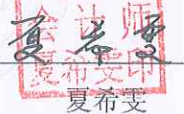 会计师
夏希雯
夏希雯印
夏希雯